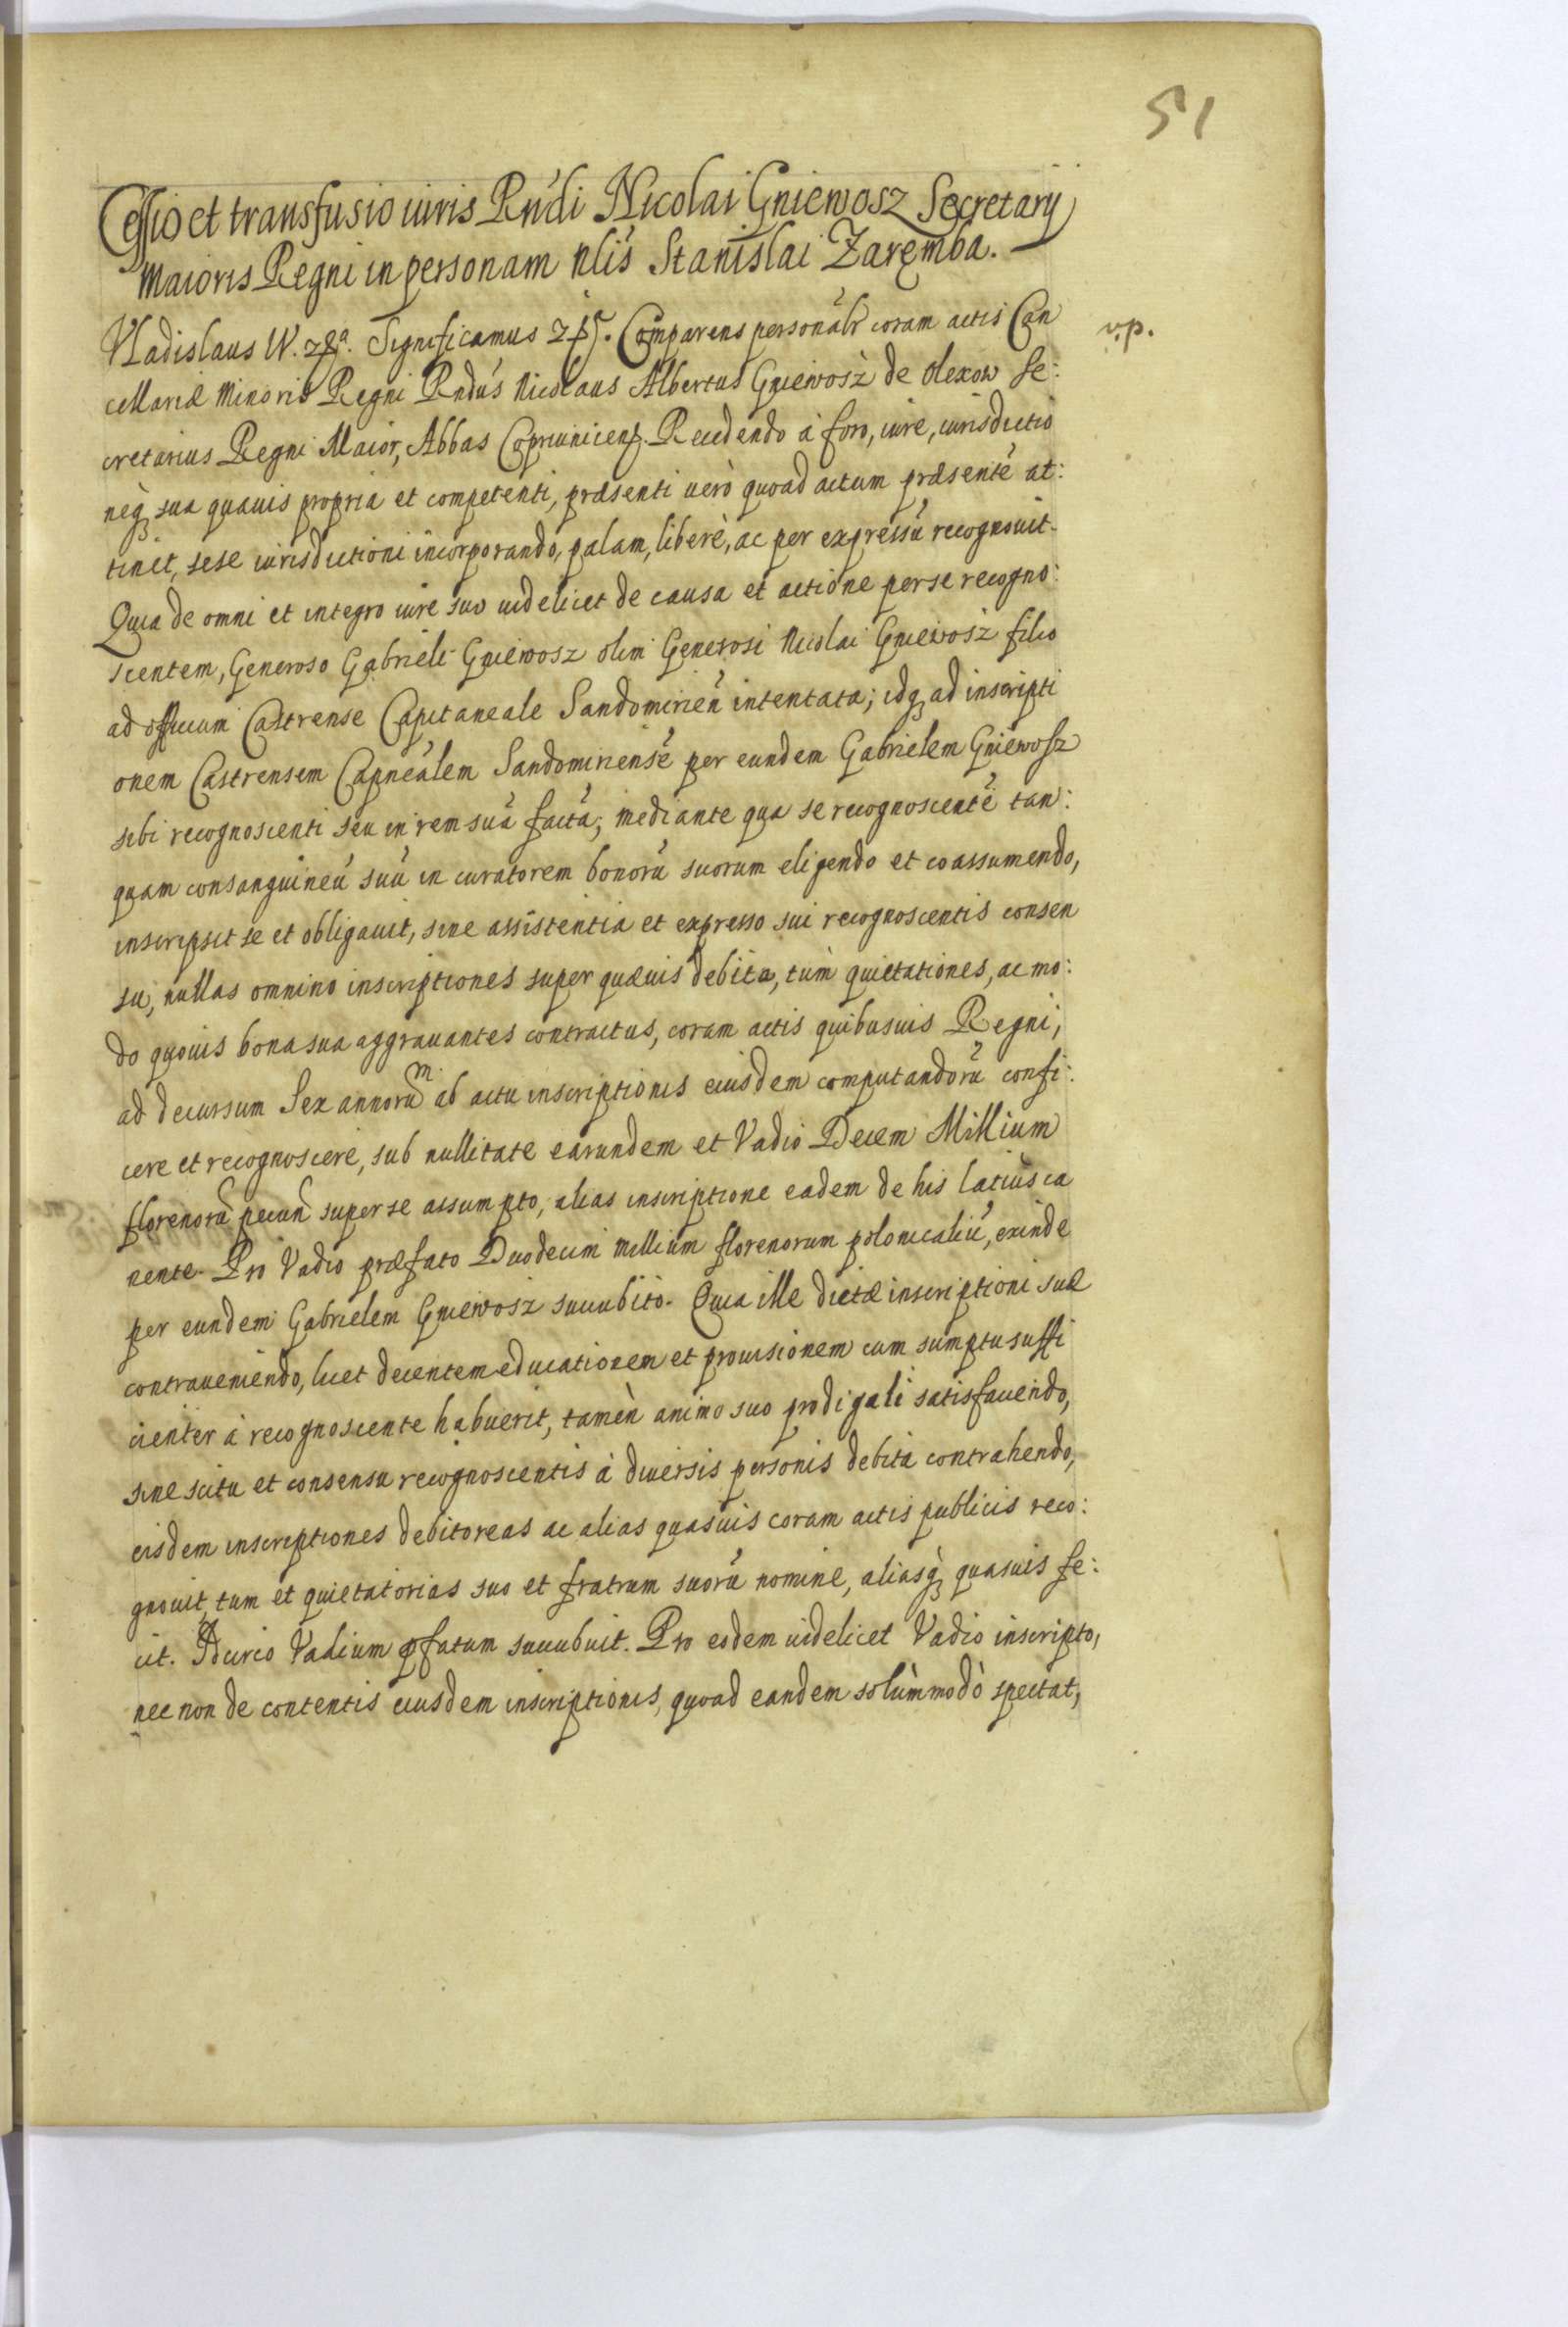 51
Cessio et transfusio iuris Rndi Nicolai Gniewosz Secretarij
Maioris Regni in personam nlis Stanislai Zaręmba.
Vladislaus IV. Significamus Comparens personalr coram actis Can
v.p.
cellariæ Minoris Regni Rndus Nicolaus Albertus Gniewosz de Olexow Se:
cretarius Regni Maior, Abbas Coprivnicens. Recedendo à foro, iure, iurisdictio
neq; sua quavis propria et competenti, præsenti verò quoad actum præsentē at:
tinet, sese iurisdictioni incorporando, palam, liberè, ac per expressū recognouit.
Quia de omni et integro iure suo uidelicet de causa et actione per se recogno:
scentem, Generoso Gabrieli Gniewosz olim Generosi Nicolai Gniewosz filio
ad officium Castrense Capitaneale Sandomirien̄ intentata; idq; ad inscripti
onem Castrensem Capnealem Sandomiriensē per eundem Gabrielem Gniewosz
sibi recognoscenti seu in rem suā factā; mediante qua se recognoscentē tan:
quam consanguineū suū in curatorem bonorū suorum eligendo et coassumendo,
inscripsit se et obligauit, sine assistentia et expresso sui recognoscentis consen
su, nullas omnino inscriptiones super quæuis debita, tùm quietationes, ac mo:
do quouis bona sua aggrauantes contractus, coram actis quibusuis Regni,
ad decursum Sex annorum ab actu inscriptionis eiusdem computandorū confi:
cere et recognoscere, sub nullitate earundem et Vadio Decem Millium
florenorū pecun̄ super se assumpto, alias inscriptione eadem de his latiùs ca
nente. Pro Vadio præfato Duodecim millium florenorum polonicaliū, exinde
per eundem Gabrielem Gniewosz succubito. Quia ille dictæ inscriptioni suæ
contraueniendo, licet decentem educationem et prouisionem cum sumptu suffi
cienter à recognoscente habuerit, tamèn animo suo prodigali satisfaciendo,
sine scitu et consensu recognoscentis à diuersis personis debita contrahendo,
eisdem inscriptiones debitoreas ac alias quasuis coram actis publicis reco:
gnouit, tum et quietatorias suo et fratrum suorū nomine, aliasq; quasuis fe:
cit. Vadium pfatum succubuit. Pro eodem uidelicet Vadio inscripto,
nec non de contentis eiusdem inscriptionis, quoad eandem solùmmodò spectat,